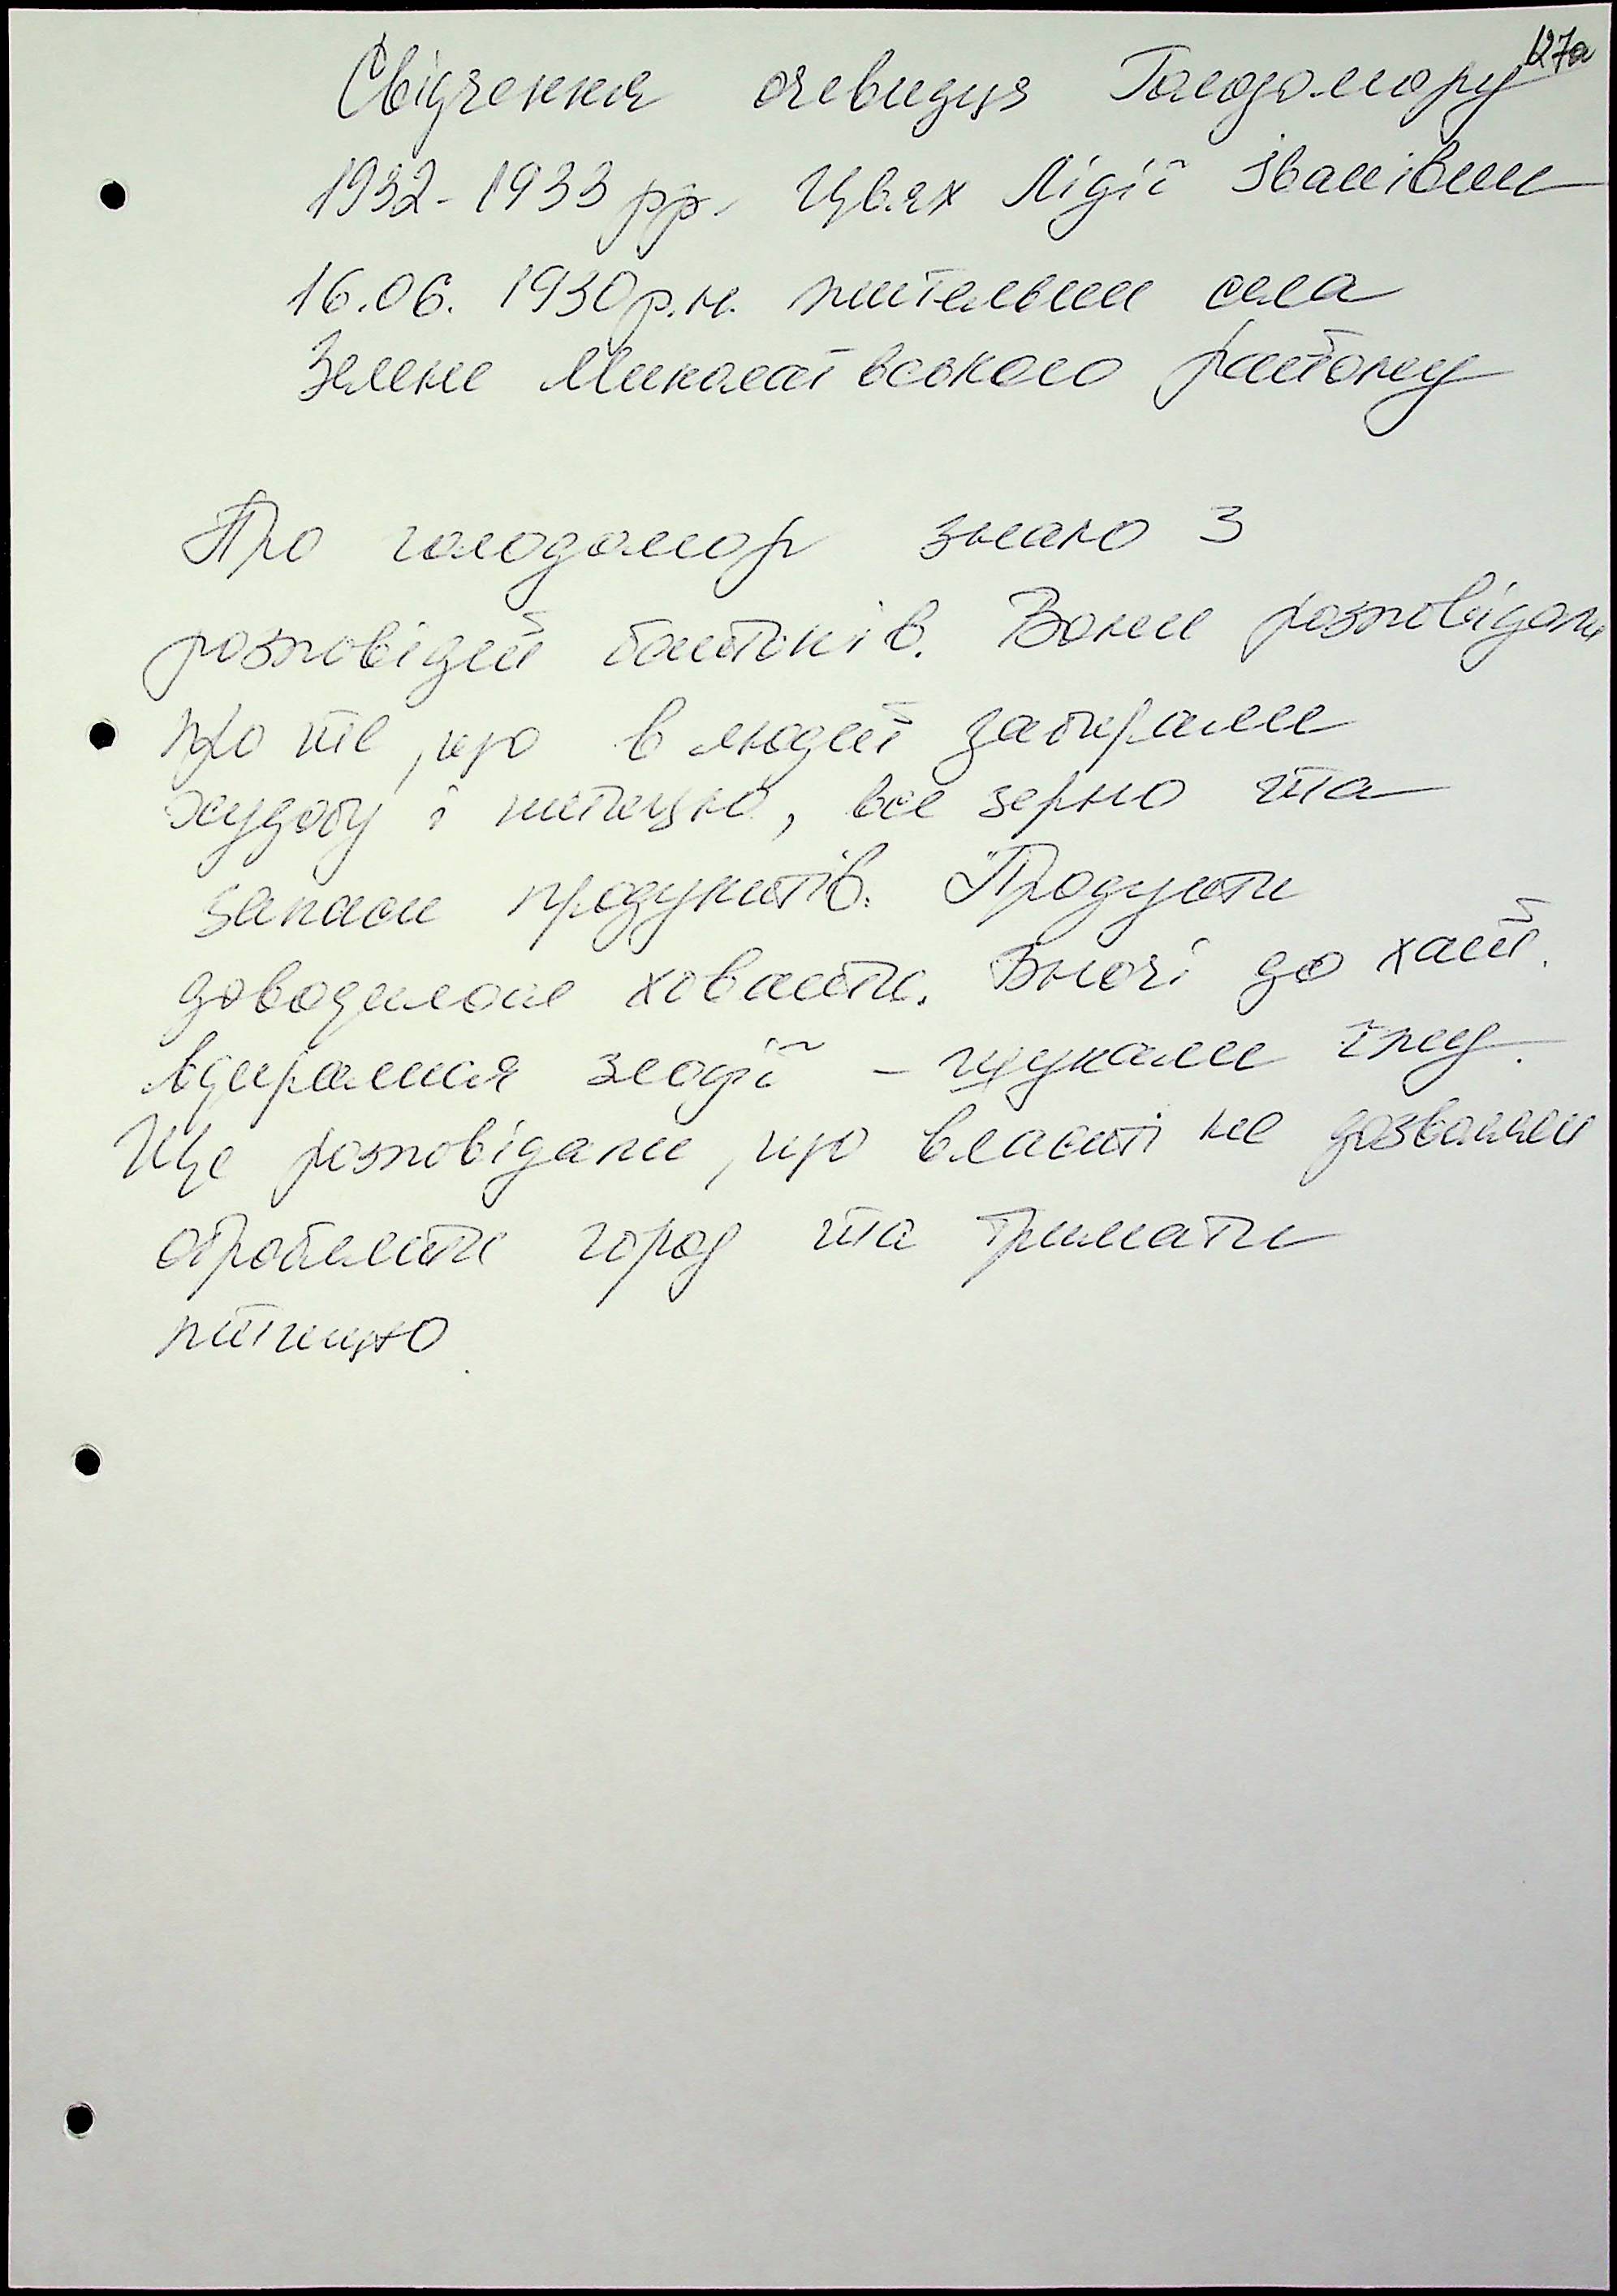 127а
Свідчення очевидця Голодомору
1932-1933 рр. Цвях Лідії Іванівни
16.06.1930 р.н. жительни села
Зелене Миколаївського району
Про голодомор знаю з
розповідей батьків. Вони розповідали
про те, що в людей забирали
худобу і птицю, все зерно та
запаси продуктів. Продукти
доводилося ховати. Вночі до хат
вдиралися злодії – шукали їжу.
Ще розповідали, що власті не дозволяли
обробляти город та тримати
птицю.